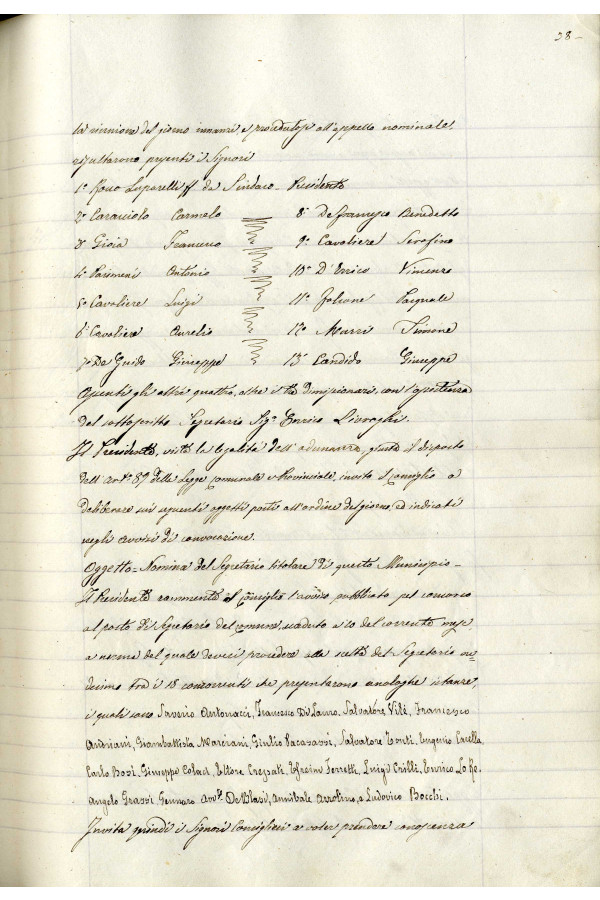 28-
la riunione del giorno innanzi e procedutosi all'appello nominale,
risultarono presenti i Signori
1° Rocco Luparelli ff da Sindaco - Presidente
2° Caracciolo Carmelo 8° Defrancesco Benedetto
3° Gioia Francesco 9° Cavaliere Serafino
4° Parimeni Antonio 10° D'Errico Vincenzo
5° Cavaliere Luigi 11° Pasquale
6° Cavaliere Aurelio 12° Marri Simone
7° De Guido Giuseppe 13° Candido Giuseppe
Assenti gli altri quattro, oltre i tre dimissionari, con l'assistenza
del sottoscritto Segretario Sigr Enrico Livraghi.
Il Presidente, vista la legalità dell'adunanza, giusta il disposto
dell'art. 89 della Legge Comunale e Provinciale, invita il Consiglio a
deliberare sui seguenti oggetti posti all'ordine del giorno, ed indicati
negli avvisi di convocazione.
Oggetto = Nomina del Segretario titolare di questo Municipio -
Il Presidente rammenta al Consiglio l'avviso pubblicato pel concorso
al posto di Segretario del comune, scaduto a 10 del corrente mese
a norma del quale devesi procedere alla scelta del Segretario me=
desimo tra i 18 concorrenti che presentarono analoghe istanze,
i quali sono Saverio Antonacci, Francesco Di Lauro, Salvatore Vilè, Francesco
Andriani, Giambattista Marciani, Giulio Pacasassi, Salvatore Conti, Eugenio Carella,
Carlo Bosi, Giuseppe Colaci, Ettore Crespati, Efraim Ferretti, Luigi Crilli, Enrico Lo Re,
Angelo Grassi Gennaro Avv. De Blasi, Annibale Arrolino, e Ludovico Bocchi.
Invita quindi i Signori Consiglieri a voler prendere conoscenza